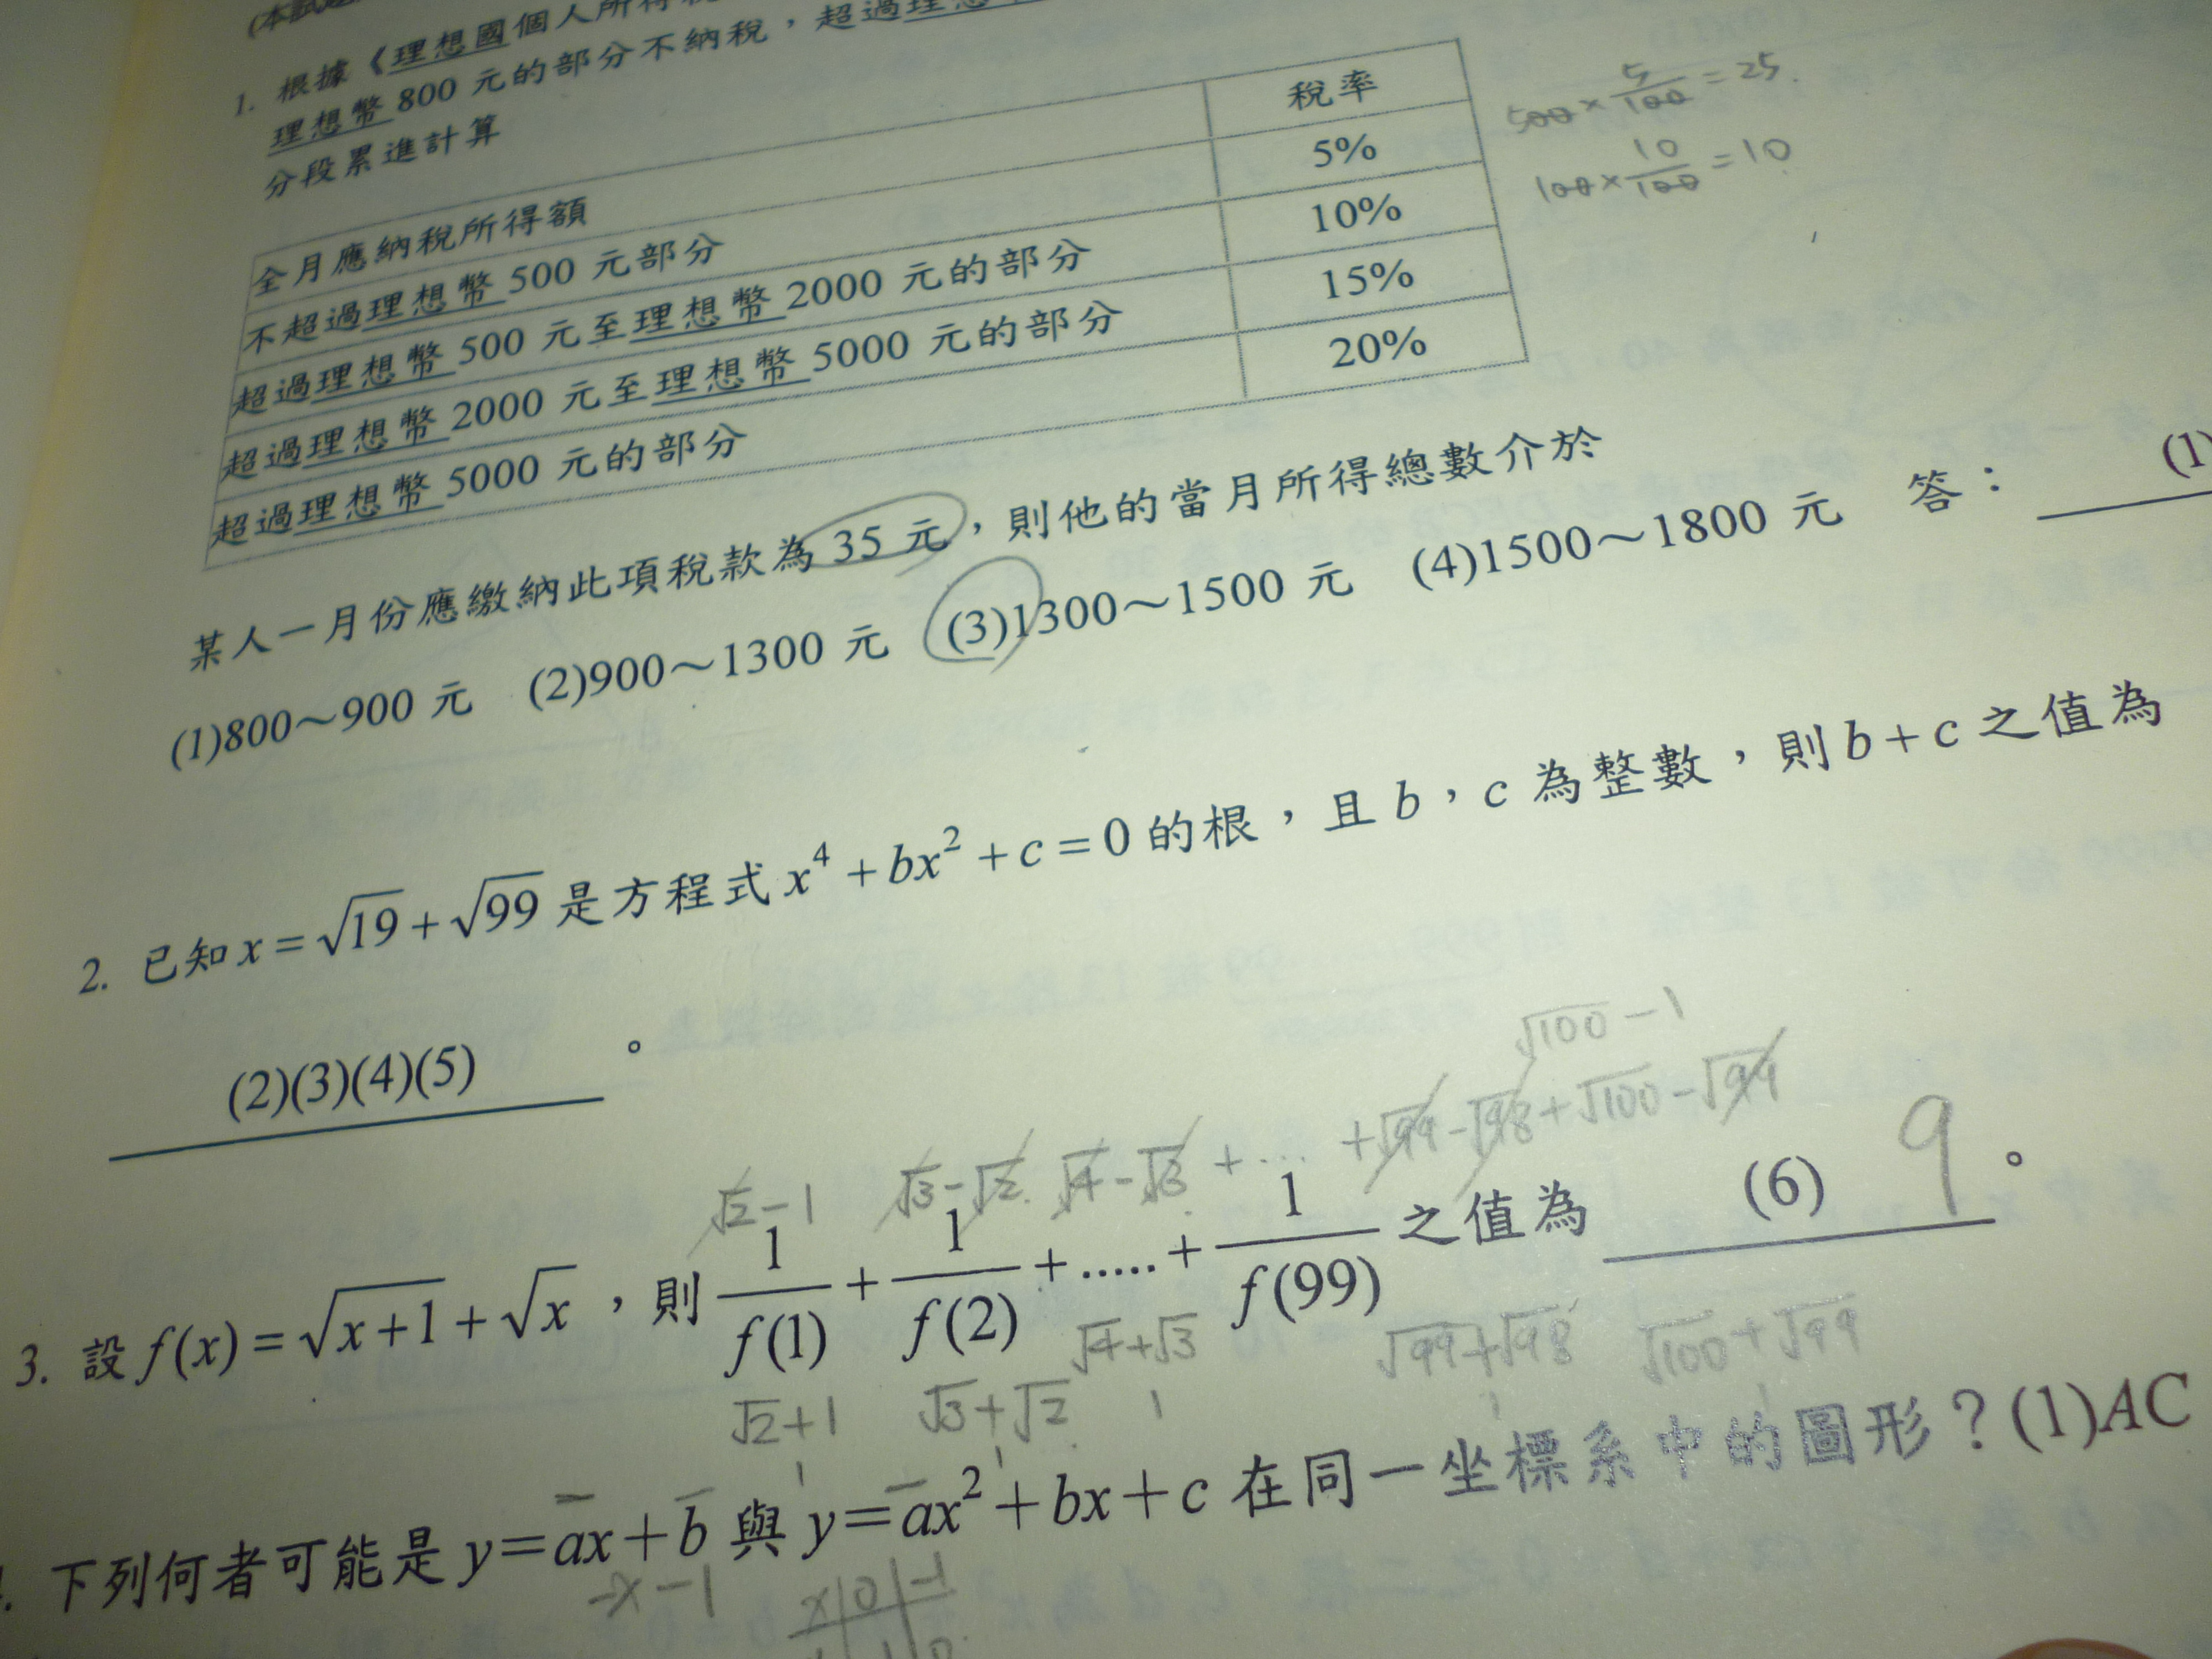 1. 根據《理想國個人所得稅
理想幣 800 元的部分不納稅，超過理想
分段累進計算
全月應納稅所得額 稅率
不超過理想幣 500 元部分 5%
超過理想幣 500 元至理想幣 2000 元的部分 10%
超過理想幣 2000 元至理想幣 5000 元的部分 15%
超過理想幣 5000 元的部分 20%
500 × 5/100 = 25.
100 × 10/100 = 10
某人一月份應繳納此項稅款為 35 元，則他的當月所得總數介於
(1)800～900 元 (2)900～1300 元 (3)1300～1500 元 (4)1500～1800 元 答： (1)
2. 已知 x = √19 + √99 是方程式 x⁴ + bx² + c = 0 的根，且 b，c 為整數，則 b + c 之值為
(2)(3)(4)(5) 。
√100 − 1
√2 − 1 √3 − √2 √4 − √3 + ... + √99 − √98 + √100 − √99
3. 設 f(x) = √(x+1) + √x ，則 1/f(1) + 1/f(2) + ..... + 1/f(99) 之值為 (6) 9 。
√2 + 1 √3 + √2 √4 + √3 √99 + √98 √100 + √99
1 1 1 1 1
下列何者可能是 y = ax + b 與 y = ax² + bx + c 在同一坐標系中的圖形？(1)AC
−x − 1 x 0 −1